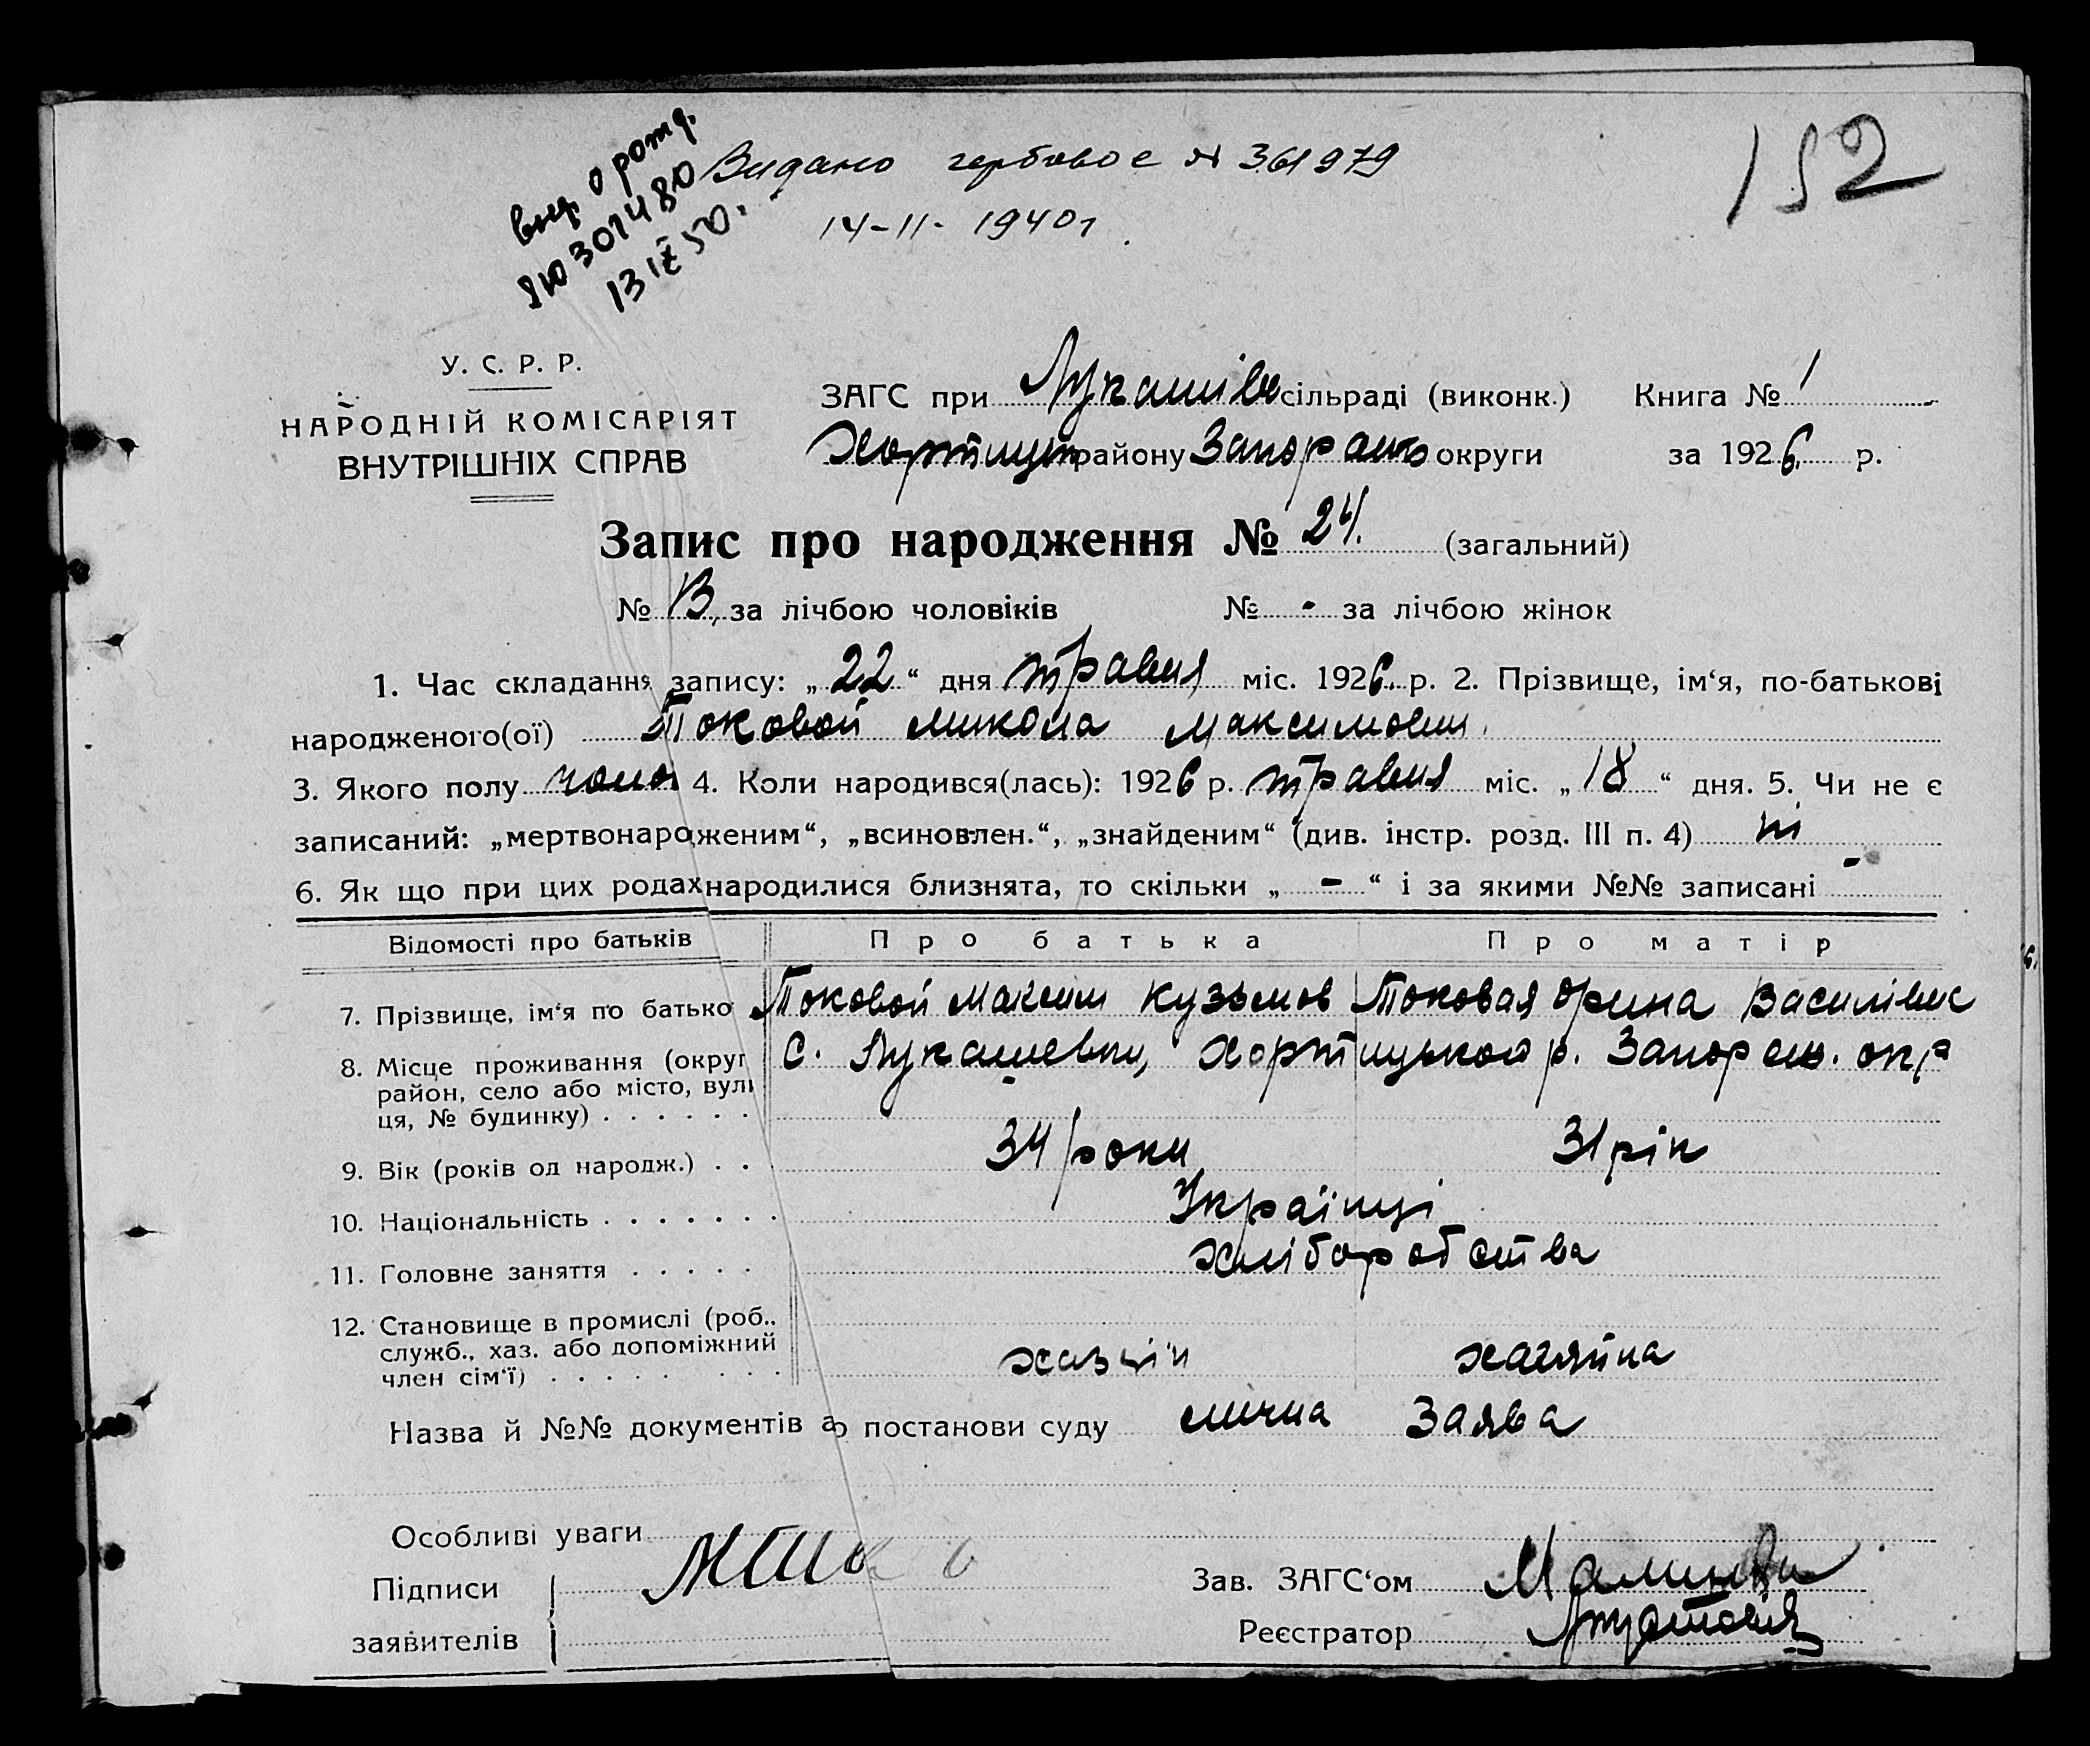 152
Видано гербовое № 361979
14-11-1940 г.
вид. о рожд.
ЯЮ 301480
13 IX 50.
У. С. Р. Р.
НАРОДНІЙ КОМІСАРІЯТ
ВНУТРІШНІХ СПРАВ
ЗАГС при Лукашівс сільраді (виконк.) Книга № 1
Хортицьк району Запоразьк округи за 1926 р.
Запис про народження № 24. (загальний)
№ 13 за лічбою чоловіків № - за лічбою жінок
1. Час складання запису: „22“ дня травня міс. 1926 р. 2. Прізвище, ім‘я, по-батькові
народженого(ої) Токовой Микола Максимович
3. Якого полу чолов 4. Коли народився(лась): 1926 р. травня міс. „18“ дня. 5. Чи не є
записаний: „мертвонародженим“, „всиновлен.“, „знайденим“ (див. інстр. розд. III п. 4) ні
6. Як що при цих родах народилися близнята, то скільки „ - “ і за якими №№ записані -
Відомості про батьків Про батька Про матір
7. Прізвище, ім‘я по батько Токовой Максим Кузьмов Токовая Орина Василівна
8. Місце проживання (округ С. Лукашевки, Хортицького р. Запорізь. окр
район, село або місто, вули
ця, № будинку) . . . . . .
9. Вік (років од народж.) . . 34 роки 31 рік
10. Національність . . . . . . . Українці
11. Головне заняття . . . . . хліборобства
12. Становище в промислі (роб.,
служб., хаз. або допоміжний хазяїн хазяйка
член сім‘ї) . . . . . . . .
Назва й №№ документів або постанови суду лична Заява
Особливі уваги
Підписи Зав. ЗАГС‘ом
заявителів Реєстратор